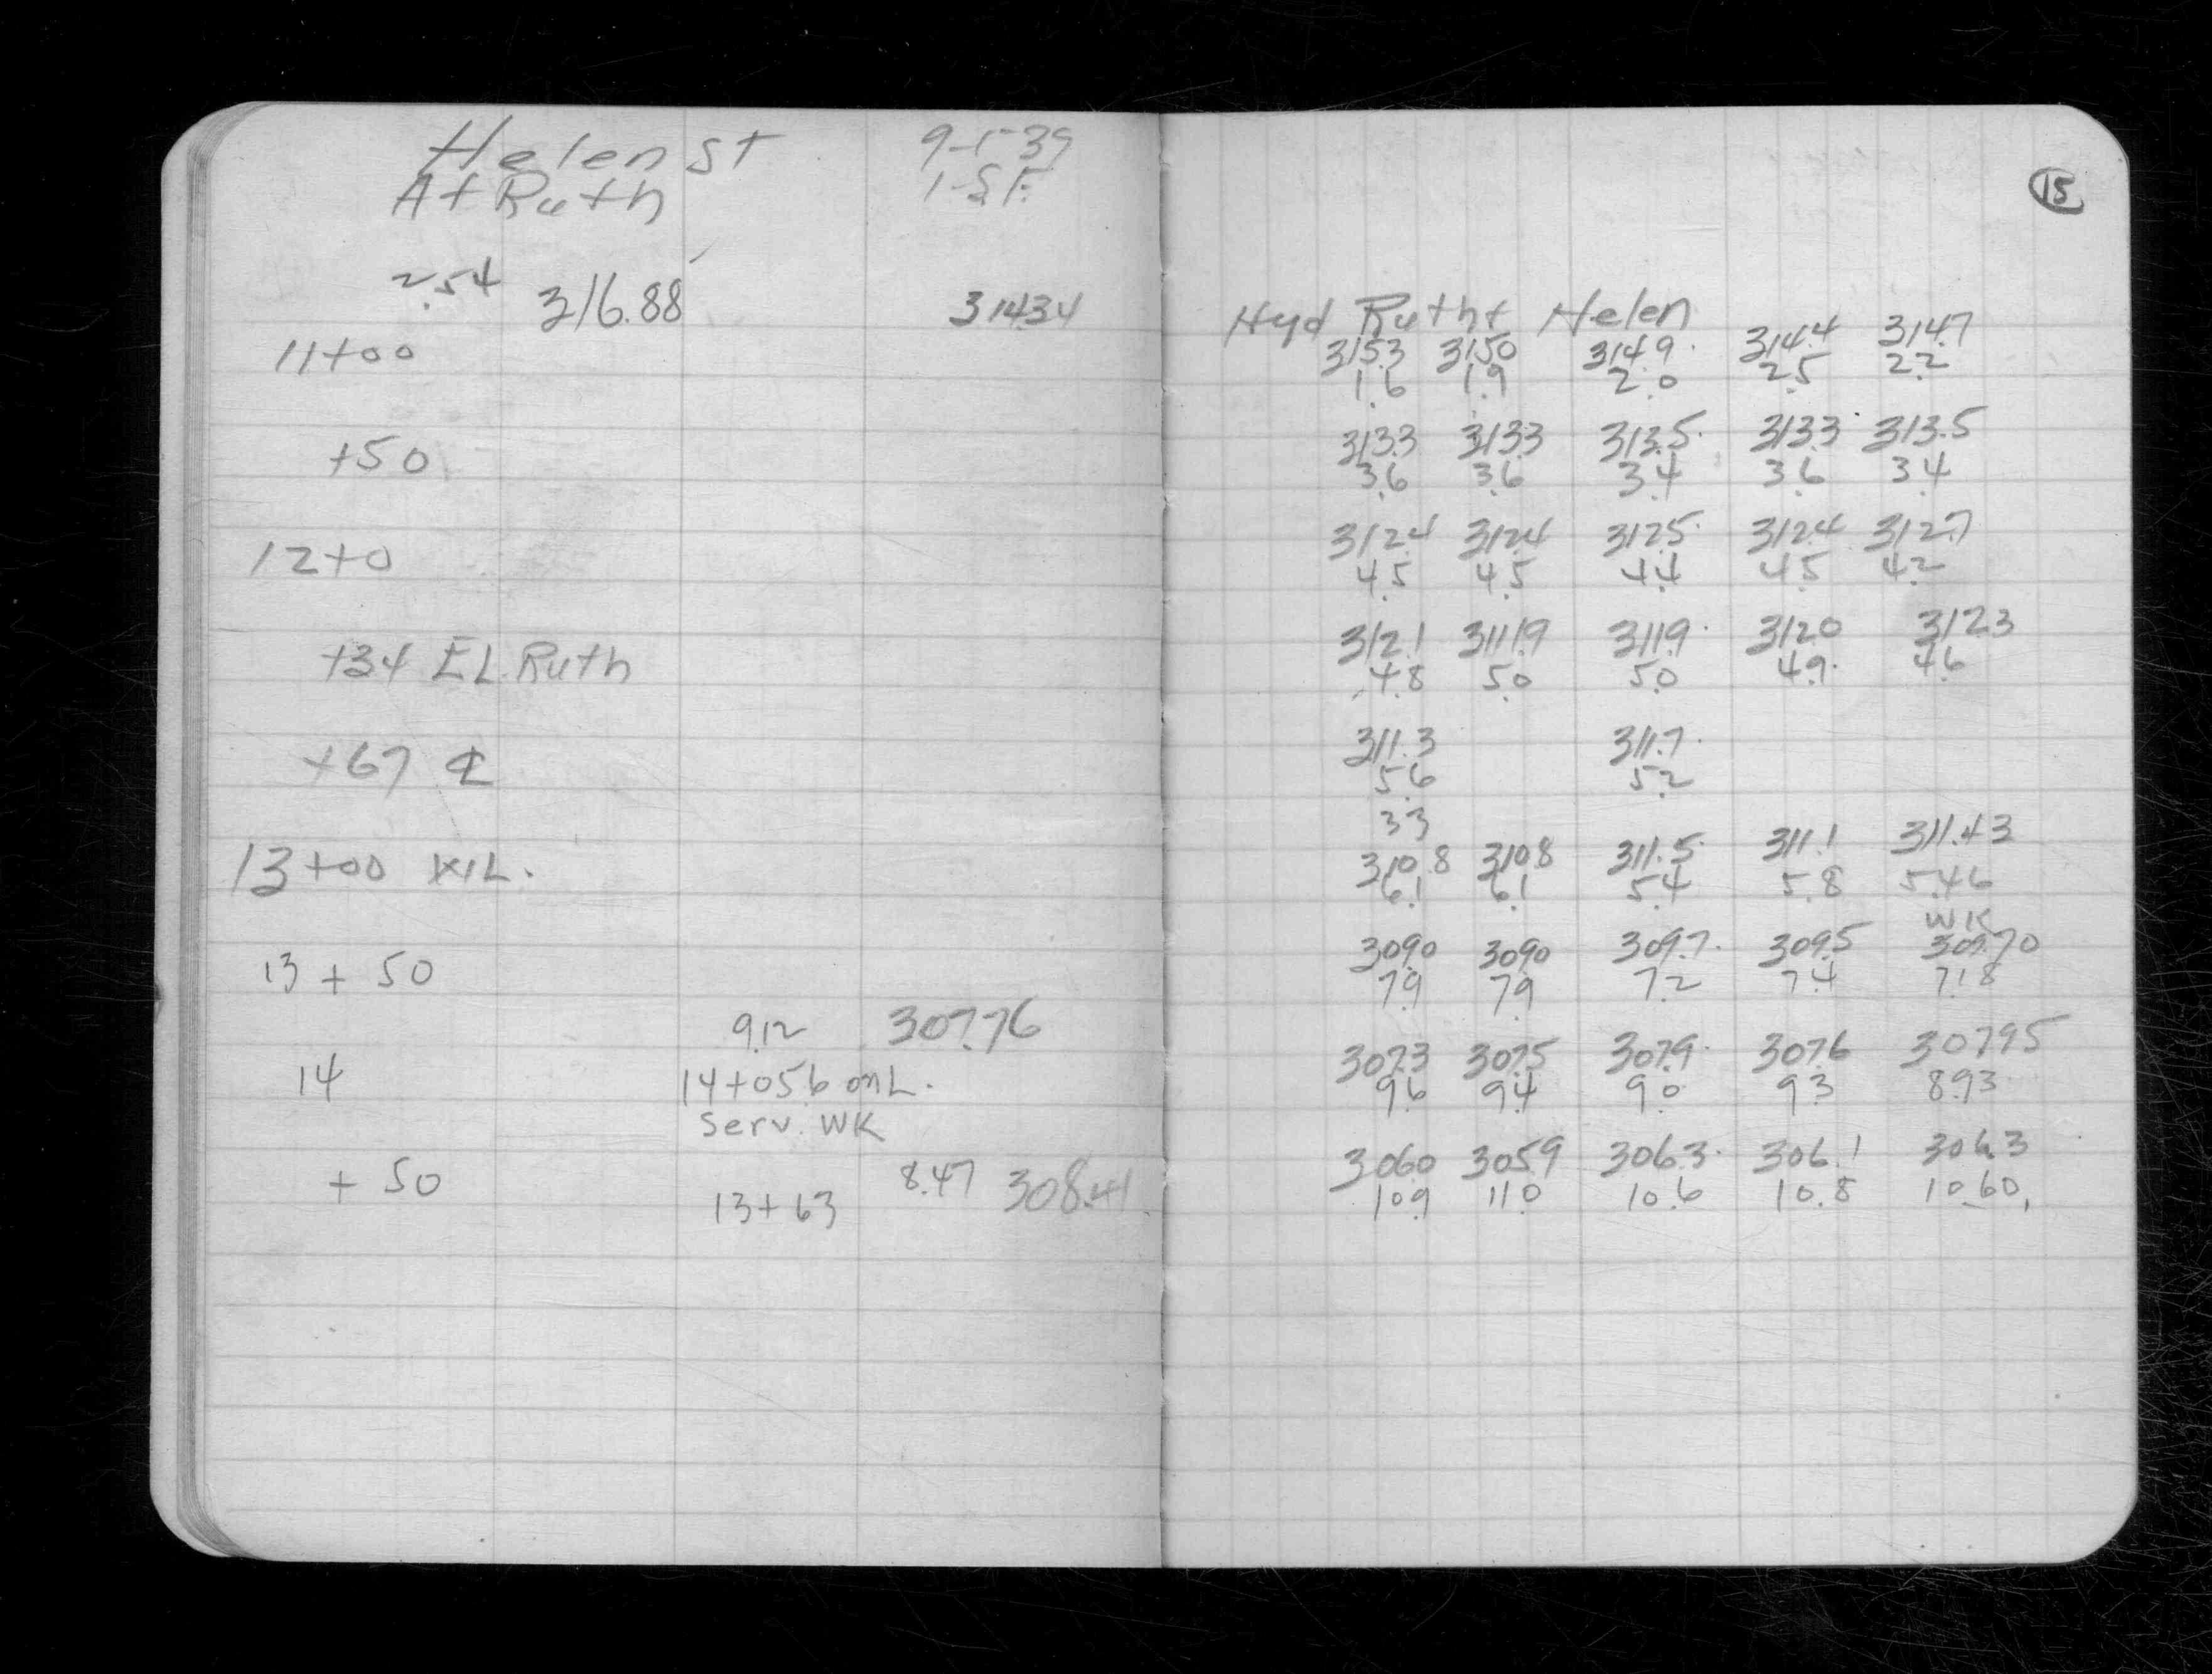 Helen St 9-1-39
At Ruth
2.54 316.88 314.34
11+00
+50
12+0
+34 EL. Ruth
+67 ℄
13+00 WL.
13 + 50
9.12 307.76
14 14+05.6 on L.
Serv. WK
+ 50 13+63 8.47 308.41
15
Hyd Ruth + Helen
315.3 315.0 314.9 314.4 314.7
1.6 1.9 2.0 2.5 2.2
313.3 313.3 313.5 313.3 313.5
3.6 3.6 3.4 3.6 3.4
312.4 312.4 312.5 312.4 312.7
4.5 4.5 4.4 4.5 4.2
312.1 311.9 311.9 312.0 312.3
4.8 5.0 5.0 4.9 4.6
311.3 311.7
5.6 5.2
33
310.8 310.8 311.5 311.1 311.43
6.1 6.1 5.4 5.8 5.46
WK
309.0 309.0 309.7 309.5 309.70
7.9 7.9 7.2 7.4 7.18
307.3 307.5 307.9 307.6 307.95
9.6 9.4 9.0 9.3 8.93
306.0 305.9 306.3 306.1 306.3
10.9 11.0 10.6 10.8 10.60